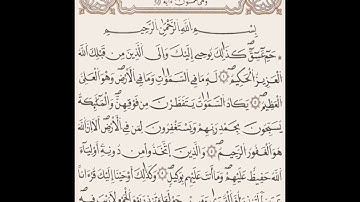 بِسْمِ اللَّهِ الرَّحْمَٰنِ الرَّحِيمِ
حمٓ عٓسٓقٓ كَذَٰلِكَ يُوحِي إِلَيْكَ وَإِلَى الَّذِينَ مِن قَبْلِكَ اللَّهُ
الْعَزِيزُ الْحَكِيمُ لَهُ مَا فِي السَّمَٰوَٰتِ وَمَا فِي الْأَرْضِ وَهُوَ الْعَلِيُّ
الْعَظِيمُ يَكَادُ السَّمَٰوَٰتُ يَتَفَطَّرْنَ مِن فَوْقِهِنَّ وَالْمَلَٰئِكَةُ
يُسَبِّحُونَ بِحَمْدِ رَبِّهِمْ وَيَسْتَغْفِرُونَ لِمَن فِي الْأَرْضِ أَلَا إِنَّ اللَّهَ
هُوَ الْغَفُورُ الرَّحِيمُ وَالَّذِينَ اتَّخَذُوا مِن دُونِهِ أَوْلِيَاءَ
اللَّهُ حَفِيظٌ عَلَيْهِمْ وَمَا أَنتَ عَلَيْهِم بِوَكِيلٍ وَكَذَٰلِكَ أَوْحَيْنَا إِلَيْكَ قُرْءَانًا